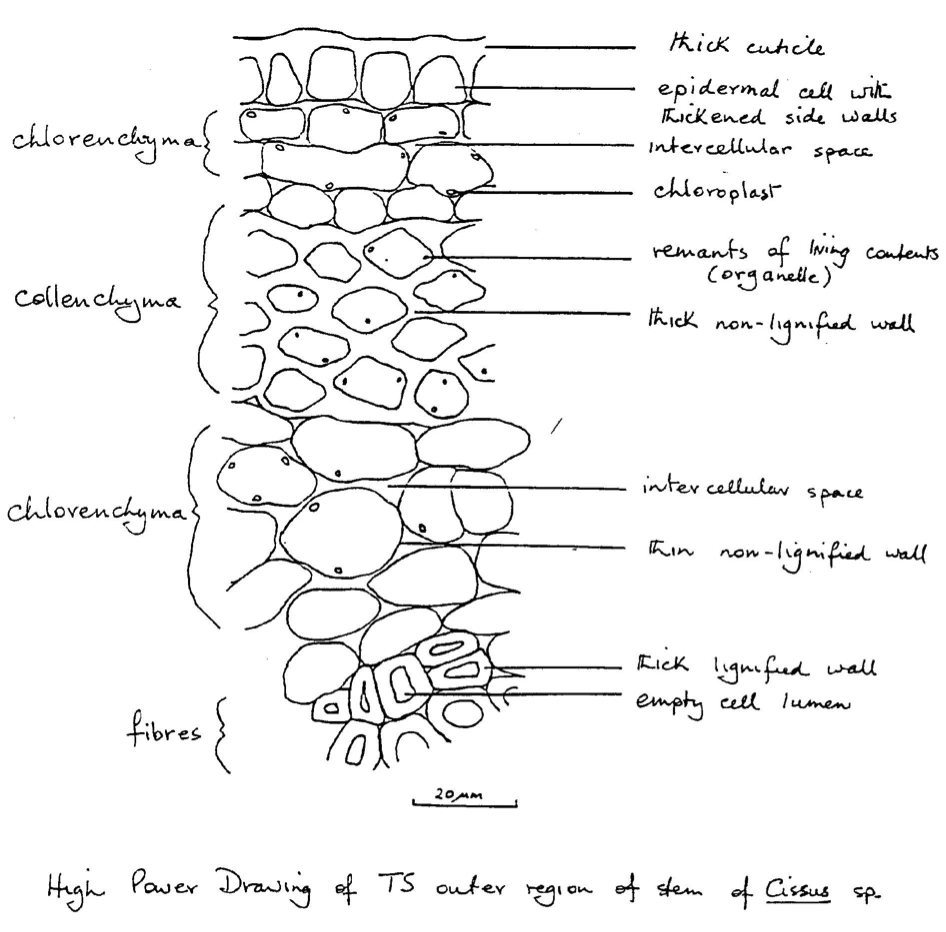 thick cuticle
epidermal cell with
thickened side walls
chlorenchyma
intercellular space
chloroplast
remants of living contents
(organelle)
collenchyma
thick non-lignified wall
intercellular space
chlorenchyma
thin non-lignified wall
thick lignified wall
empty cell lumen
fibres
20 µm
High Power Drawing of TS outer region of stem of Cissus sp.